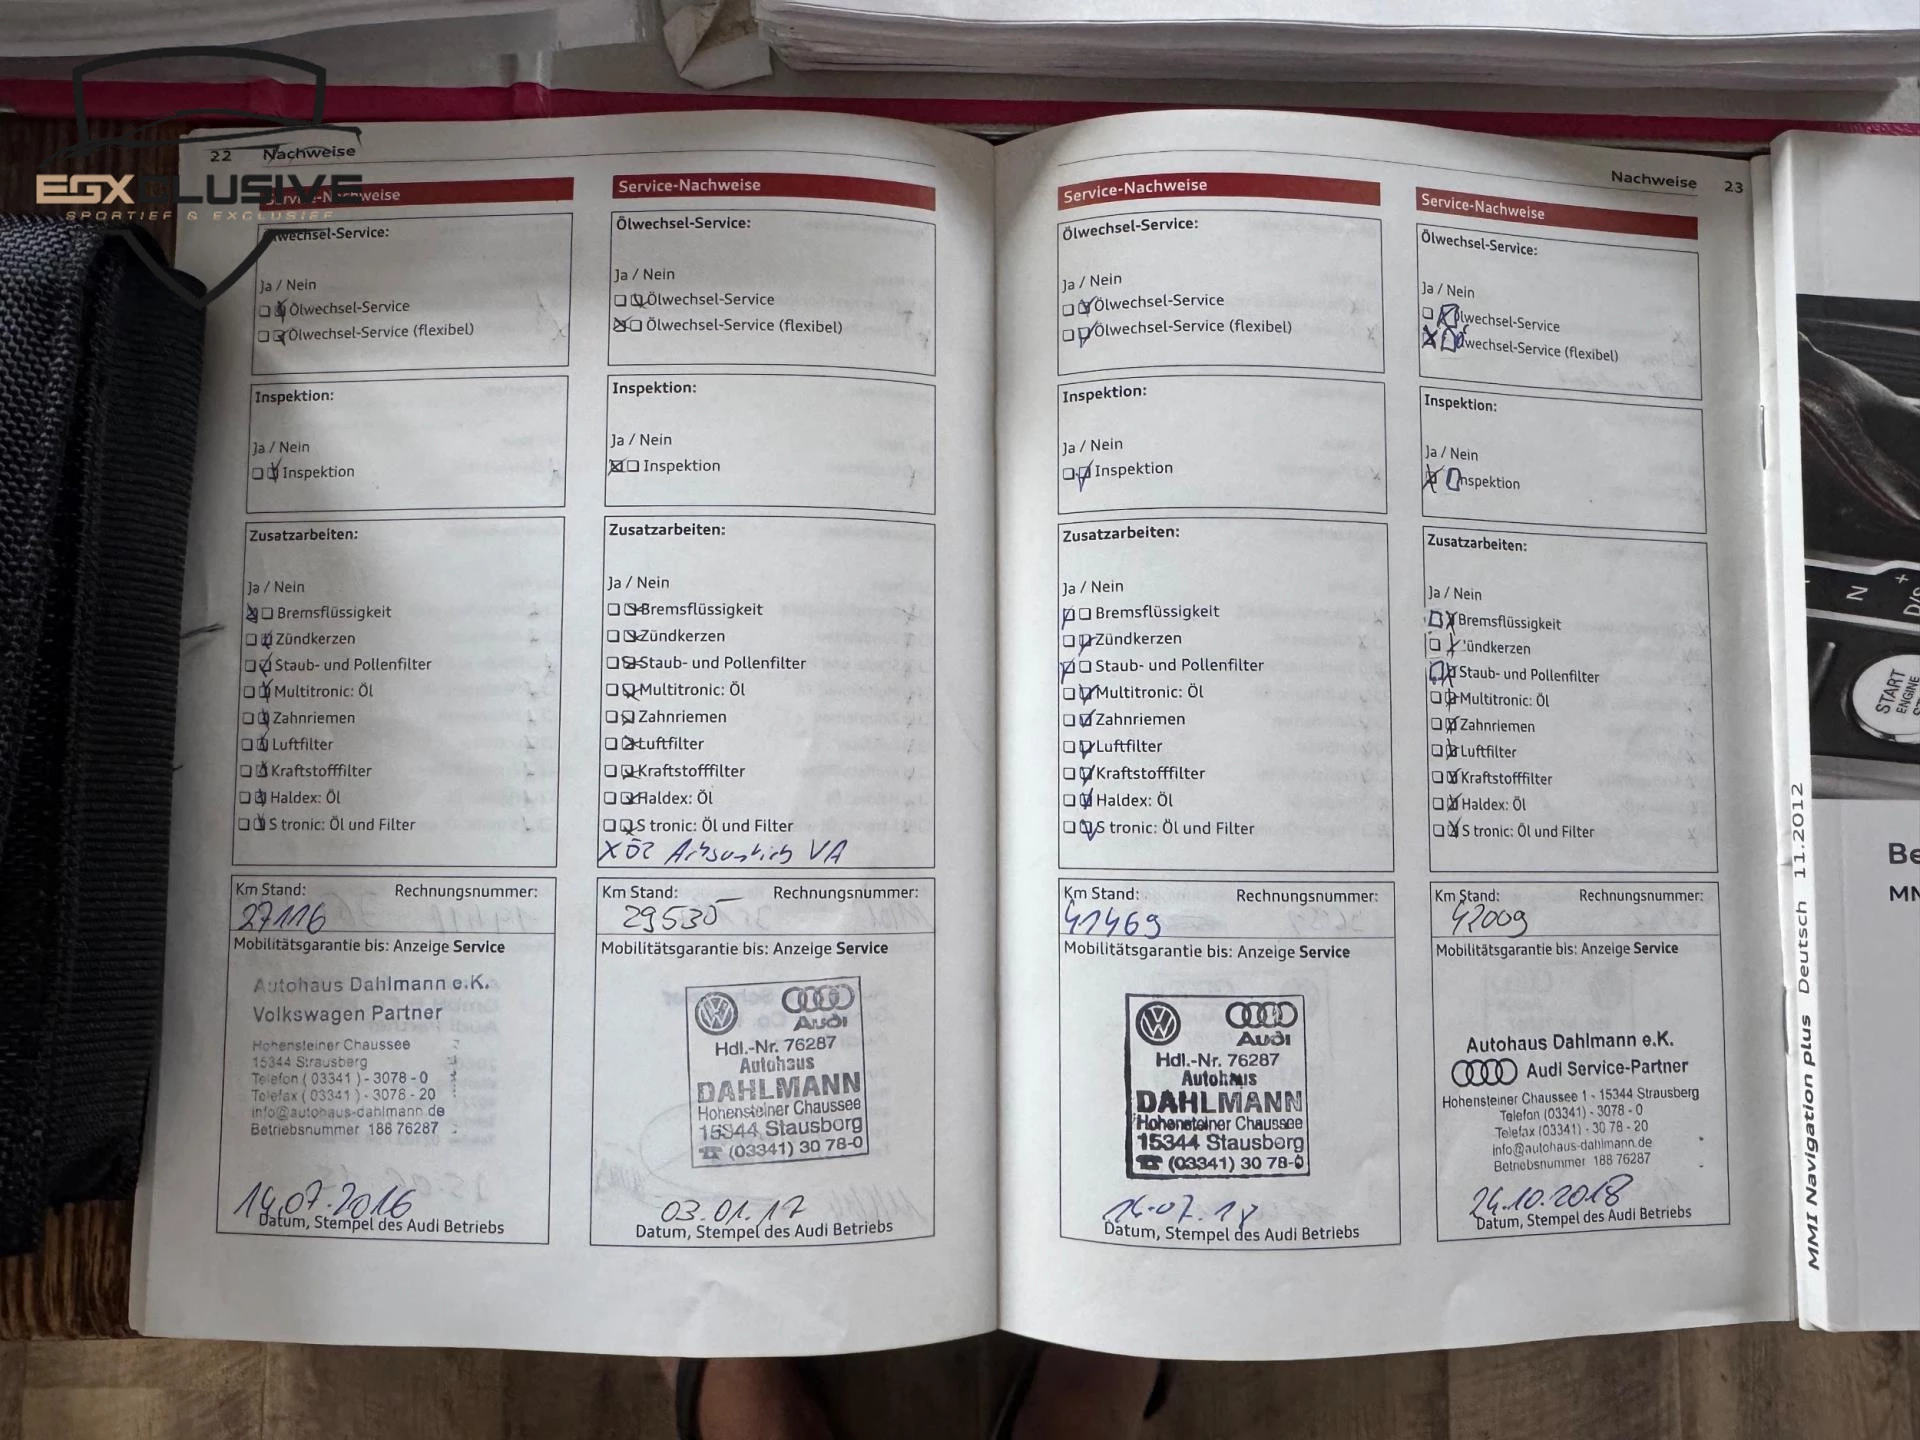 EGXCLUSIVE
SPORTIEF & EXCLUSIEF
22 Nachweise
Service-Nachweise
Ölwechsel-Service:
Ja / Nein
Ölwechsel-Service
Ölwechsel-Service (flexibel)
Inspektion:
Ja / Nein
Inspektion
Zusatzarbeiten:
Ja / Nein
Bremsflüssigkeit
Zündkerzen
Staub- und Pollenfilter
Multitronic: Öl
Zahnriemen
Luftfilter
Kraftstofffilter
Haldex: Öl
S tronic: Öl und Filter
Km Stand: Rechnungsnummer:
27116
Mobilitätsgarantie bis: Anzeige Service
Autohaus Dahlmann e.K.
Volkswagen Partner
Hohensteiner Chaussee
15344 Strausberg
Telefon (03341) - 3078 - 0
Telefax (03341) - 3078 - 20
info@autohaus-dahlmann.de
Betriebsnummer 188 76287
14.07.2016
Datum, Stempel des Audi Betriebs
Service-Nachweise
Ölwechsel-Service:
Ja / Nein
Ölwechsel-Service
Ölwechsel-Service (flexibel)
Inspektion:
Ja / Nein
Inspektion
Zusatzarbeiten:
Ja / Nein
Bremsflüssigkeit
Zündkerzen
Staub- und Pollenfilter
Multitronic: Öl
Zahnriemen
Luftfilter
Kraftstofffilter
Haldex: Öl
S tronic: Öl und Filter
VA
Km Stand: Rechnungsnummer:
29535
Mobilitätsgarantie bis: Anzeige Service
Audi
Hdl.-Nr. 76287
Autohaus
DAHLMANN
Hohensteiner Chaussee
15344 Stausberg
☎ (03341) 30 78-0
03.01.17
Datum, Stempel des Audi Betriebs
Nachweise 23
Service-Nachweise
Ölwechsel-Service:
Ja / Nein
Ölwechsel-Service
Ölwechsel-Service (flexibel)
Inspektion:
Ja / Nein
Inspektion
Zusatzarbeiten:
Ja / Nein
Bremsflüssigkeit
Zündkerzen
Staub- und Pollenfilter
Multitronic: Öl
Zahnriemen
Luftfilter
Kraftstofffilter
Haldex: Öl
S tronic: Öl und Filter
Km Stand: Rechnungsnummer:
41469
Mobilitätsgarantie bis: Anzeige Service
Audi
Hdl.-Nr. 76287
Autohaus
DAHLMANN
Hohensteiner Chaussee
15344 Stausberg
☎ (03341) 30 78-0
Datum, Stempel des Audi Betriebs
Service-Nachweise
Ölwechsel-Service:
Ja / Nein
Ölwechsel-Service
Ölwechsel-Service (flexibel)
Inspektion:
Ja / Nein
Inspektion
Zusatzarbeiten:
Ja / Nein
Bremsflüssigkeit
Zündkerzen
Staub- und Pollenfilter
Multitronic: Öl
Zahnriemen
Luftfilter
Kraftstofffilter
Haldex: Öl
S tronic: Öl und Filter
Km Stand: Rechnungsnummer:
42009
Mobilitätsgarantie bis: Anzeige Service
Autohaus Dahlmann e.K.
Audi Service-Partner
Hohensteiner Chaussee 1 - 15344 Strausberg
Telefon (03341) - 3078 - 0
Telefax (03341) - 30 78 - 20
info@autohaus-dahlmann.de
Betriebsnummer 188 76287
24.10.2018
Datum, Stempel des Audi Betriebs
MMI Navigation plus Deutsch 11.2012
N
START
ENGINE
Be